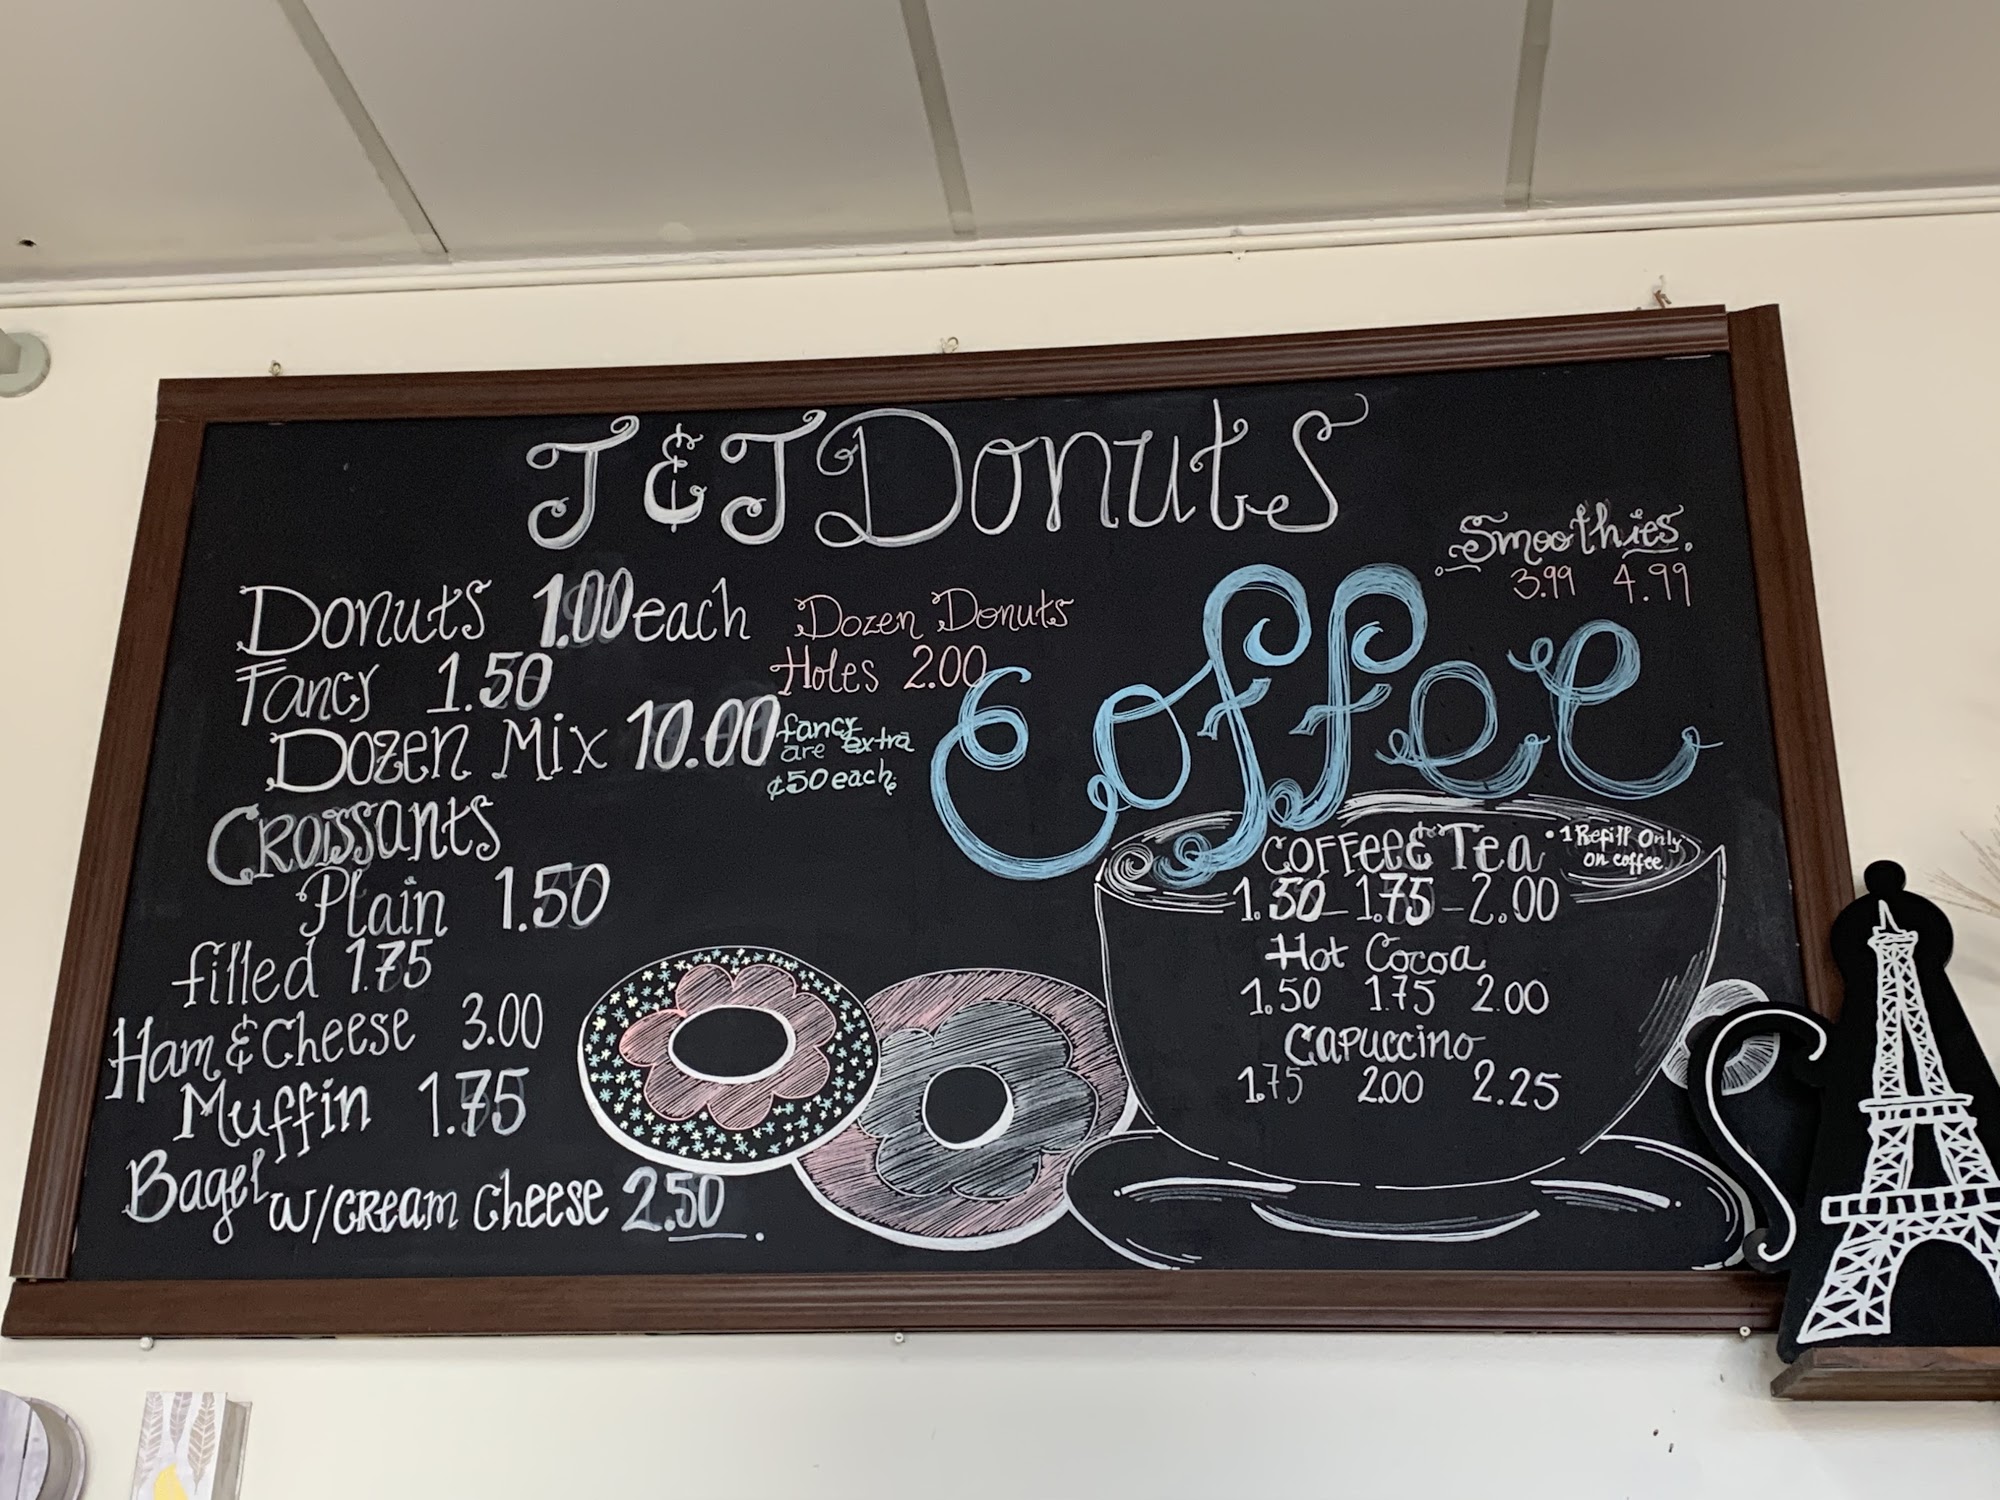 J & J Donuts
Donuts 1.00 each
Fancy 1.50
Dozen Mix 10.00
fancy
are extra
¢50 each.
Dozen Donuts
Holes 2.00
Croissants
Plain 1.50
filled 1.75
Ham & Cheese 3.00
Muffin 1.75
Bagel w/cream cheese 2.50.
Smoothies.
3.99 4.99
Coffee
Coffee & Tea
• 1 Refill Only
on coffee.
1.50 - 1.75 - 2.00
Hot Cocoa
1.50 1.75 2.00
Capuccino
1.75 2.00 2.25